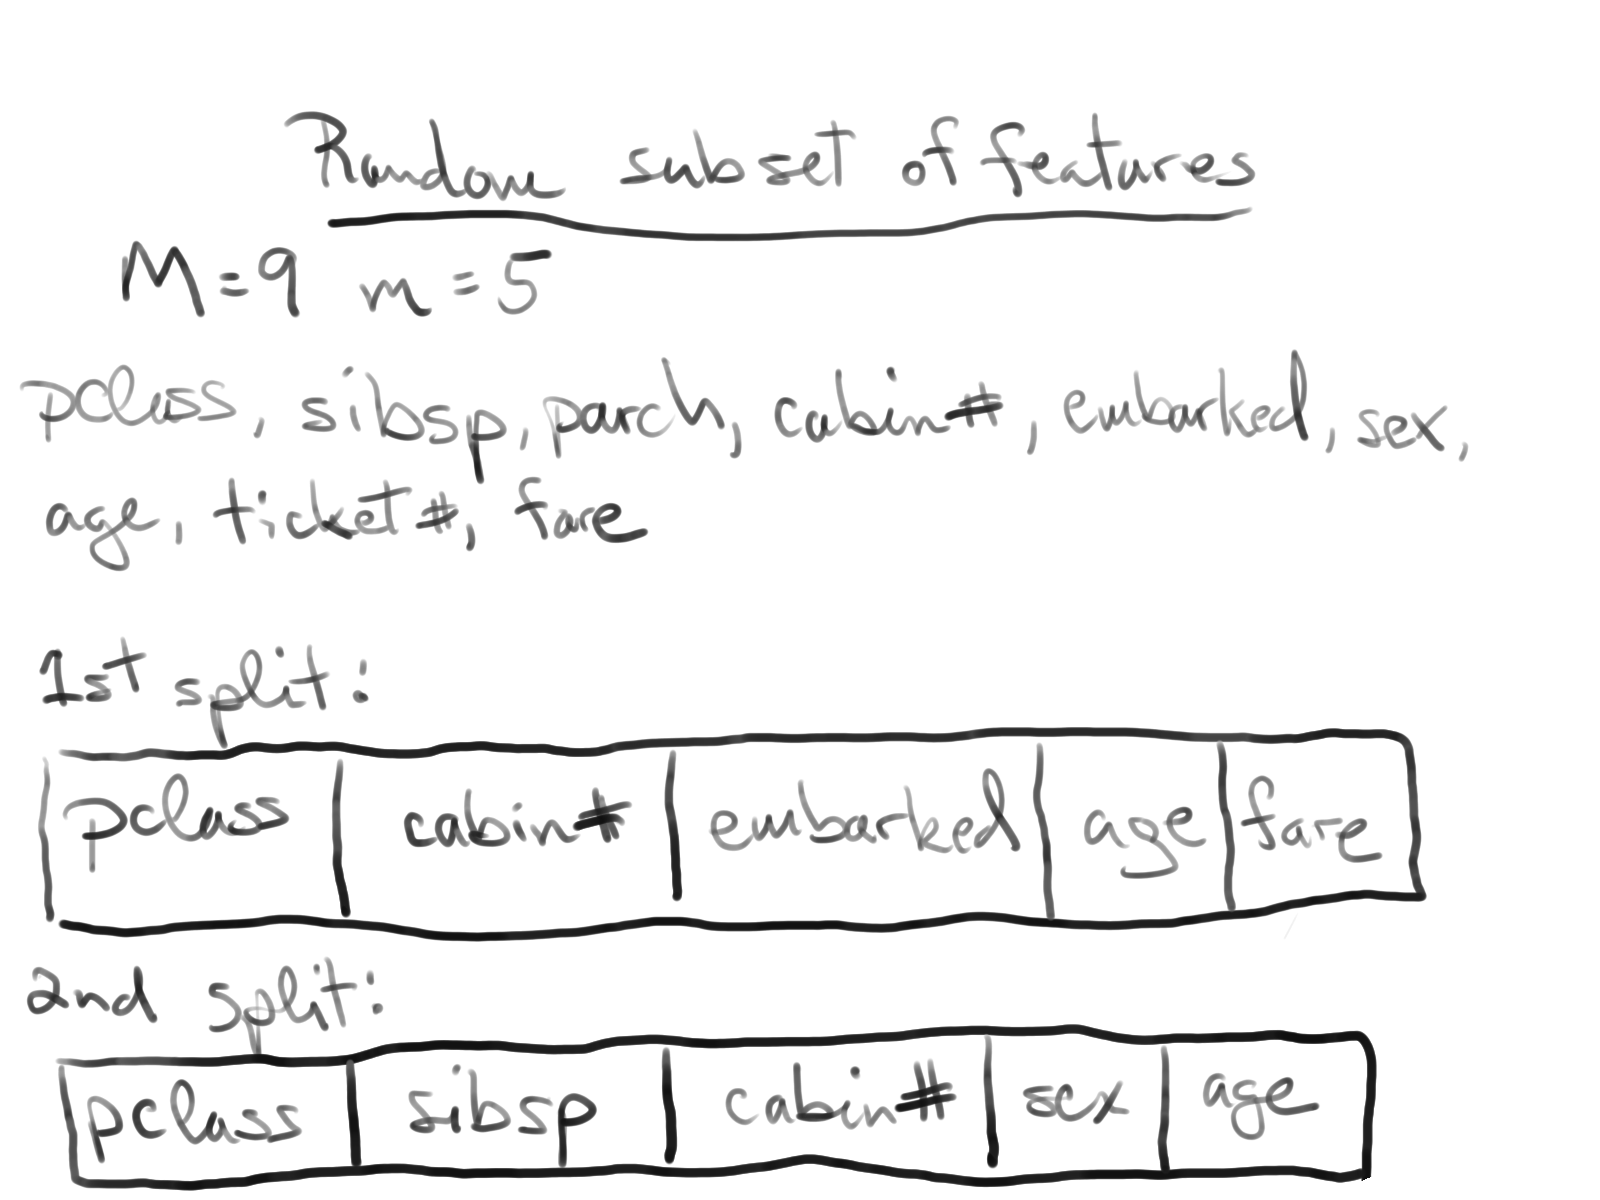 Random subset of features
M=9 m=5
pclass, sibsp, parch, cabin#, embarked, sex,
age, ticket#, fare
1st split:
pclass cabin# embarked age fare
2nd split:
pclass sibsp cabin# sex age